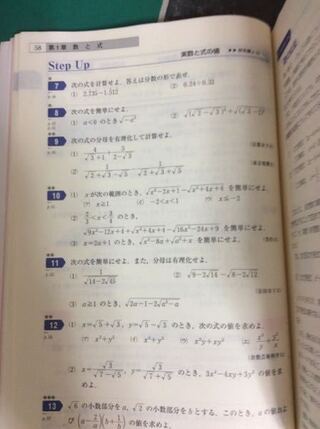 58 第1章 数と式
実数と式の値
Step Up
7 次の式を計算せよ. 答えは分数の形で表せ.
(1) (2) 0.24÷0.33
8 次の式を簡単にせよ.
(1) a<0 のとき √-a³ (2)
9 次の式の分母を有理化して計算せよ.
(1) 4/(√3+1) + 5/(2-√3)
(2) 1/(√2+√3-√5) 1/(√2+√3+√5)
10 (1) x が次の範囲のとき, √x²-2x+1-√x²+4x+4 を簡単にせよ.
(ア) x≧1 (イ) -2<x<1 (ウ) x≦-2
(2) 2/3<x<3/4 のとき,
√9x²-12x+4+√x²-4x+4-√16x²-24x+9 を簡単にせよ.
(3) x=2a+1 のとき, √x²-8a+√a²+x を簡単にせよ.
11 次の式を簡単にせよ. また, 分母は有理化せよ.
(1) 1/√14-2√45 (2) √9-2√14-√8-2√12
(3) a≧1 のとき, √2a-1-2√a²-a
12 (1) x=√5+√3, y=√5-√3 のとき, 次の式の値を求めよ.
(ア) x²+y² (イ) x³+y³ (ウ) x²y+xy² (エ)
(2) x=√3/(√7-√5), y=√3/(√7+√5) のとき, 3x²-4xy+3y² の値を求
めよ.
13 √6 の小数部分を a, √2 の小数部分を b とする. このとき, a の値およ
び (a-2/a)(b+1/b) の値を求めよ.